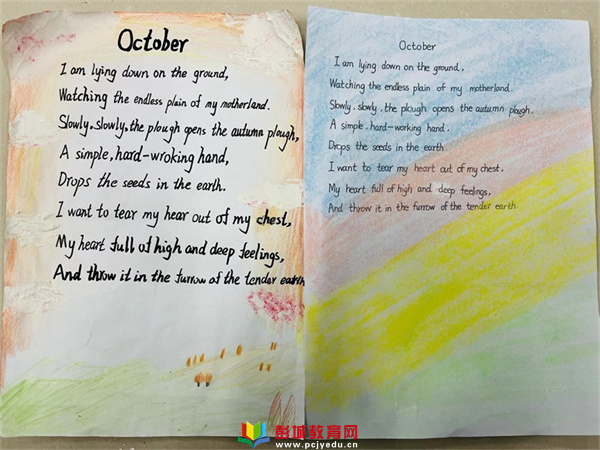 October
I am lying down on the ground,
Watching the endless plain of my motherland.
Slowly, slowly, the plough opens the autumn plough,
A simple, hard-wroking hand,
Drops the seeds in the earth.
I want to tear my hear out of my chest,
My heart full of high and deep feelings,
And throw it in the furrow of the tender earth
October
I am lying down on the ground,
Watching the endless plain of my motherland.
Slowly, slowly, the plough opens the autumn plough.
A simple, hard-working hand,
Drops the seeds in the earth
I want to tear my heart out of my chest,
My heart full of high and deep feelings,
And throw it in the furrow of the tender earth.
彭城教育网
www.pcjyedu.cn